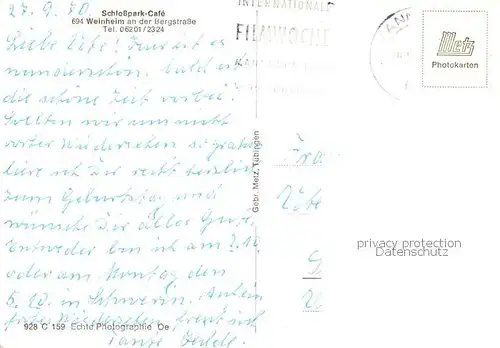 27.9.70.
Schloßpark-Café
694 Weinheim an der Bergstraße
Tel. 06201/2324
Liebe Ute! Hier ist es
wunderschön. bald ist
die schöne Zeit vorbei.
Sollten wir uns nicht
vorher wiedersehen so gratu
liere ich Dir recht herzlich
zum Geburtstag und
wünsche Dir alles Gute.
Entweder bin ich am 2.10.
oder am Montag den
5.10. in Schwerin. Auf ein
frohes Wiedersehen freut sich
Tante
928 C 159 Echte Photographie De
Gebr. Metz, Tübingen
INTERNATIONALE
FILMWOCHE
MANNHEIM
Metz
Photokarten
Frau
Ute
privacy protection
DatenSchutz